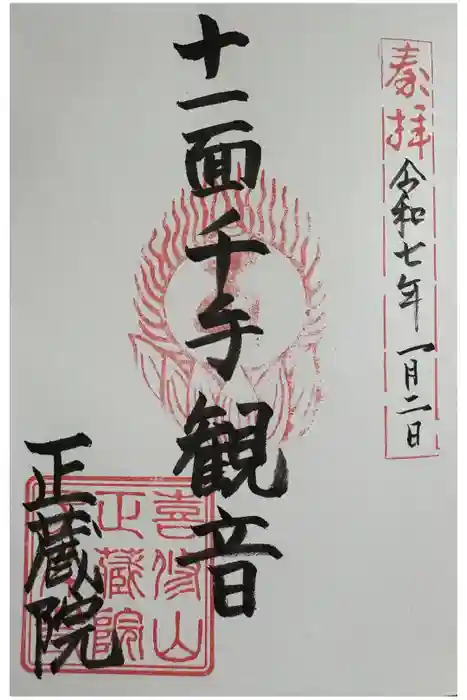 奉拝
令和七年一月二日
十一面千手観音
正蔵院
喜修山
正蔵院